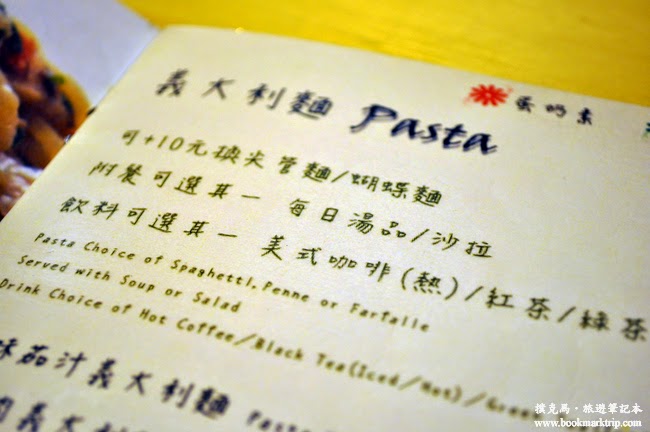 義大利麵 Pasta
蛋奶素
可+10元換尖管麵/蝴蝶麵
附餐可選其一 每日湯品/沙拉
飲料可選其一 美式咖啡(熱)/紅茶/綠茶
Pasta Choice of Spaghetti, Penne or Farfalle
Served with Soup or Salad
Drink Choice of Hot Coffee/Black Tea(Iced/Hot)/Green
茄汁義大利麵 Pasta
義大利麵
撲克馬·旅遊筆記本
www.bookmarktrip.com